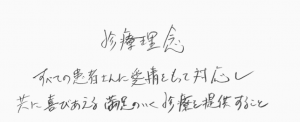 診療理念
すべての患者さんに愛情をもって対応し
共に喜びあえる満足のいく診療を提供すること